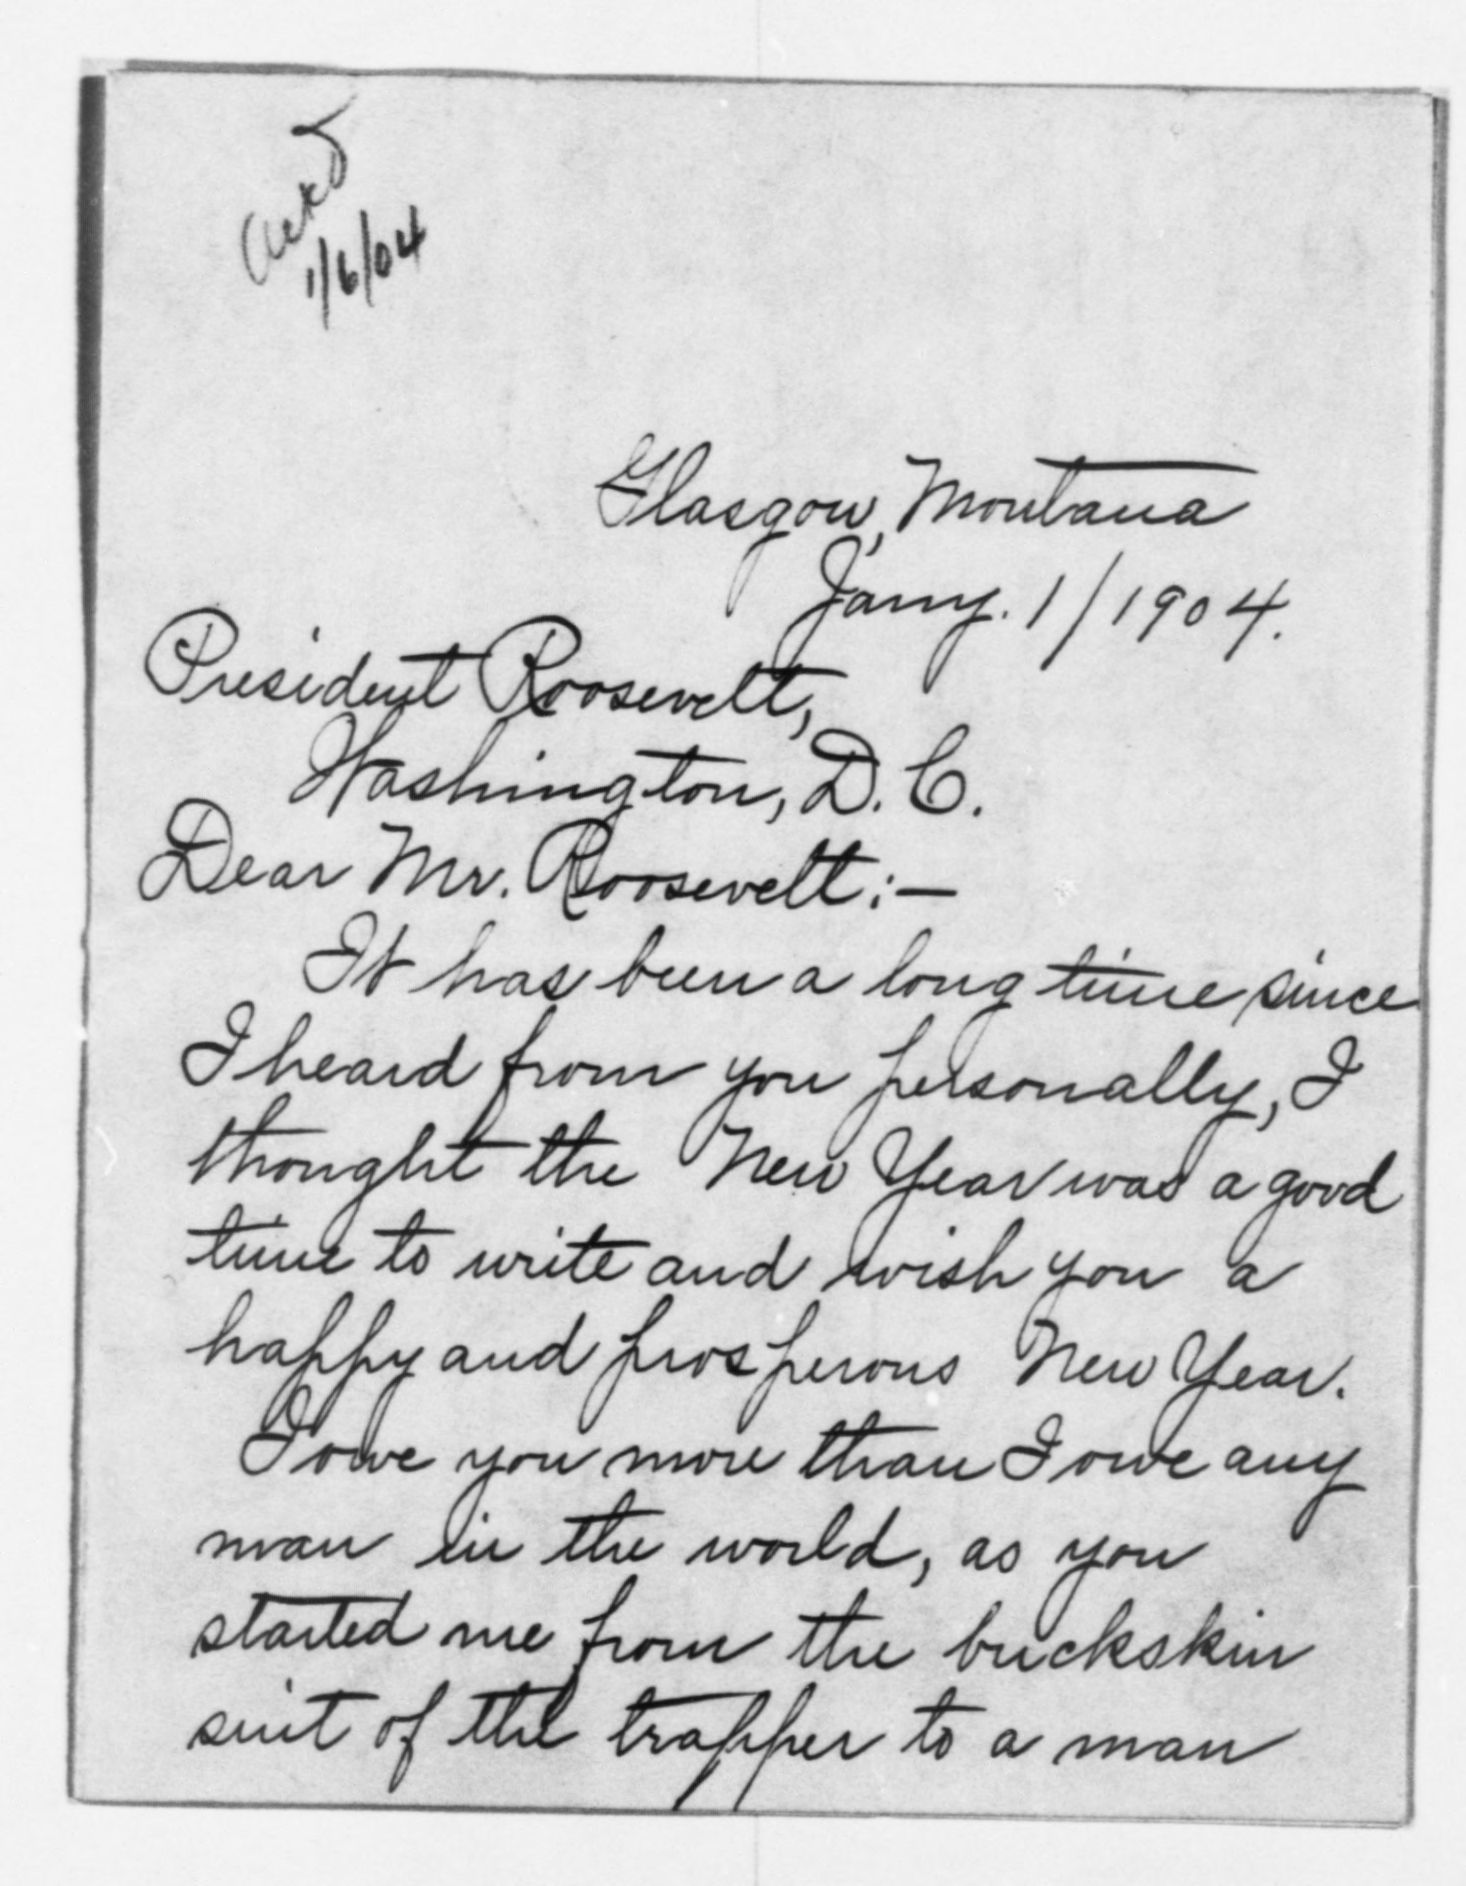 Ackd
1/6/04
Glasgow, Montana
Jany. 1/1904.
President Roosevelt,
Washington, D.C.
Dear Mr. Roosevelt:—
It has been a long time since
I heard from you personally, I
thought the New Year was a good
time to write and wish you a
happy and prosperous New Year.
I owe you more than I owe any
man in the world, as you
started me from the buckskin
suit of the trapper to a man